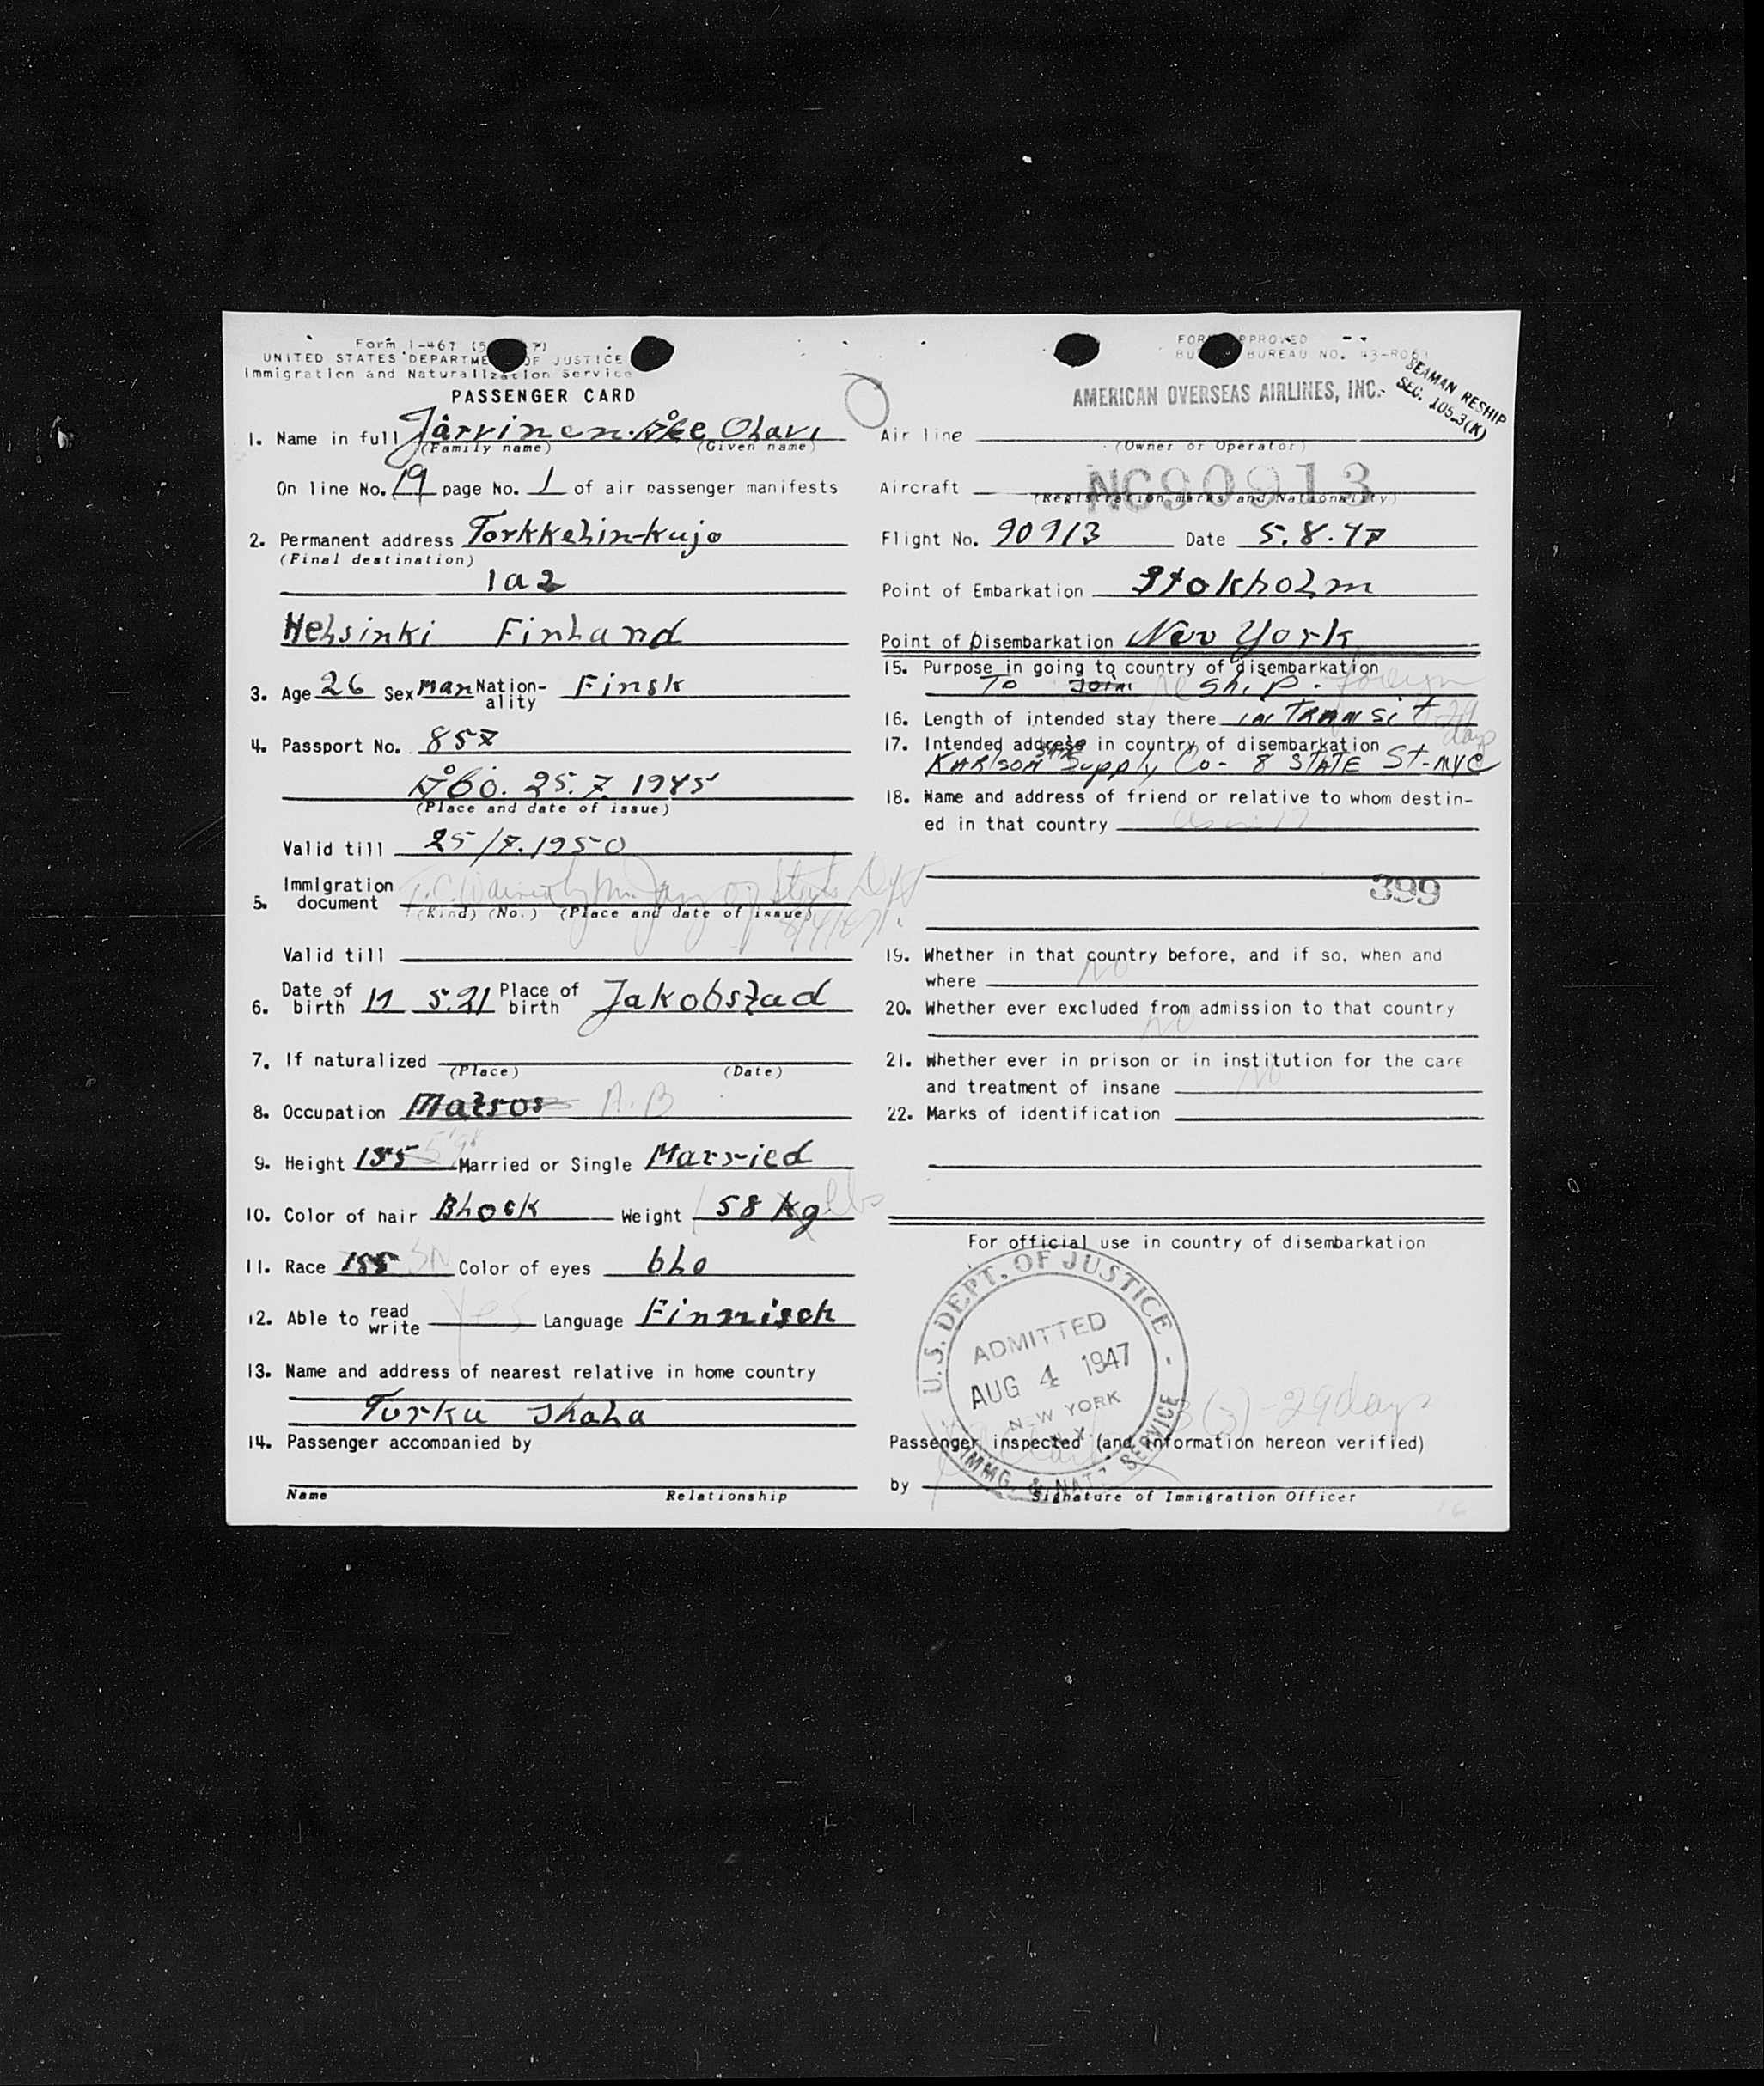 Form I-467
UNITED STATES DEPARTMENT OF JUSTICE
Immigration and Naturalization Service
PASSENGER CARD
1. Name in full Järvinen. Åke Olavi
(Family name) (Given name)
On line No. 19 page No. 1 of air passenger manifests
2. Permanent address Torkkelin-kujo
(Final destination)
1 a 2
Helsinki Finland
3. Age 26 Sex Man Nationality Finsk
4. Passport No. 857
Åbo. 25.7.1945
(Place and date of issue)
Valid till 25/7.1950
5. Immigration document
(Kind) (No.) (Place and date of issue)
Valid till
6. Date of birth 11 5.21 Place of birth Jakobstad
7. If naturalized
(Place) (Date)
8. Occupation Matros A.B
9. Height 155 Married or Single Married
10. Color of hair Black Weight 58 Kg lbs
11. Race Color of eyes blo
12. Able to read write Yes Language Finnisch
13. Name and address of nearest relative in home country
Turku
14. Passenger accompanied by
Name Relationship
FORM APPROVED
BUREAU NO.
SEAMAN RESHIP
SEC. 105.3(K)
AMERICAN OVERSEAS AIRLINES, INC.
Air line
(Owner or Operator)
Aircraft NC90913
(Registration marks and Nationality)
Flight No. 90913 Date 5.8.47
Point of Embarkation Stokholm
Point of Disembarkation New York
15. Purpose in going to country of disembarkation
To Join Ship. foreign
16. Length of intended stay there in Transit 29 days
17. Intended address in country of disembarkation
KARlSON Supply Co - 8 STATE St - NYC
18. Name and address of friend or relative to whom destin-
ed in that country as in 17
399
19. Whether in that country before, and if so, when and
where No
20. Whether ever excluded from admission to that country
No
21. Whether ever in prison or in institution for the care
and treatment of insane No
22. Marks of identification
For official use in country of disembarkation
U.S. DEPT. OF JUSTICE - IMMG. & NAT. SERVICE
ADMITTED
AUG 4 1947
NEW YORK
N.Y.
29 days
Passenger inspected (and information hereon verified)
by
Signature of Immigration Officer